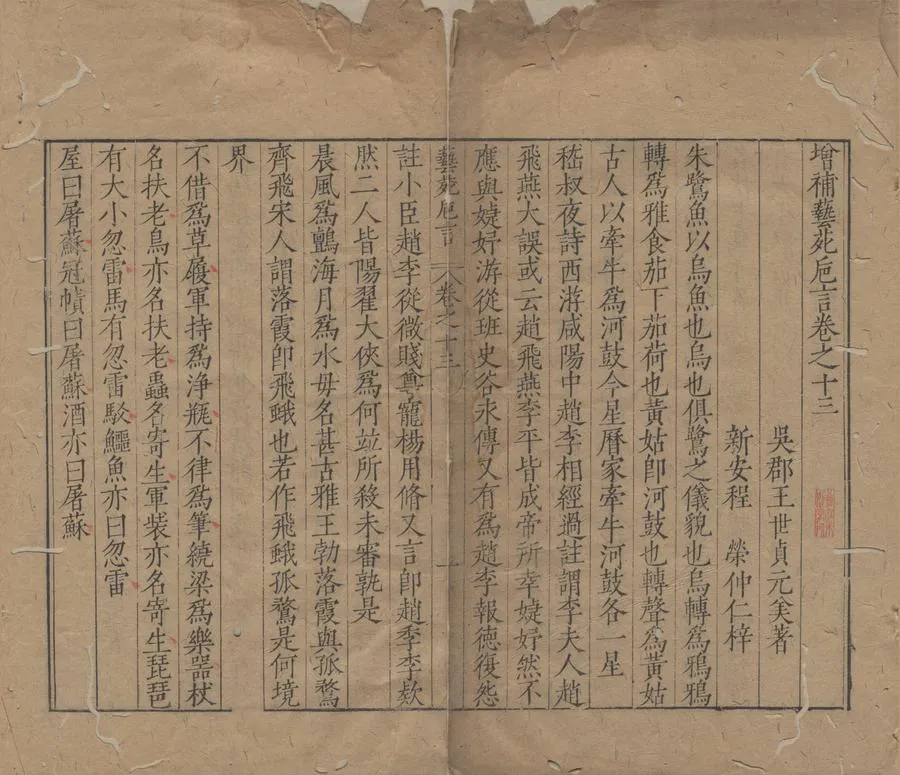 增補藝苑巵言卷之十三
吳郡王世貞元美著
新安程 榮仲仁梓
朱鷺魚以烏魚也烏也俱鷺之儀貌也烏轉爲鴉鴉
轉爲雅食茄下茄荷也黃姑卽河鼓也轉聲爲黃姑
古人以牽牛爲河鼓今星曆家牽牛河鼓各一星
嵇叔夜詩西游咸陽中趙李相經過註謂李夫人趙
飛燕大誤或云趙飛燕李平皆成帝所幸婕妤然不
應與婕妤游從班史谷永傳又有爲趙李報德復怨
藝苑巵言 卷之十三 一
註小臣趙李從微賤尊寵楊用脩又言卽趙季李款
然二人皆陽翟大俠爲何竝所殺未審孰是
晨風爲鸇海月爲水毋名甚古雅王勃落霞與孤鶩
齊飛宋人謂落霞卽飛蛾也若作飛蛾孤鶩是何境
界
不借爲草履軍持爲浄瓶不律爲筆繞梁爲樂器杖
名扶老鳥亦名扶老蟲名寄生軍装亦名寄生琵琶
有大小忽雷馬有忽雷駮鱷魚亦曰忽雷
屋曰屠蘇冠幘曰屠蘇酒亦曰屠蘇